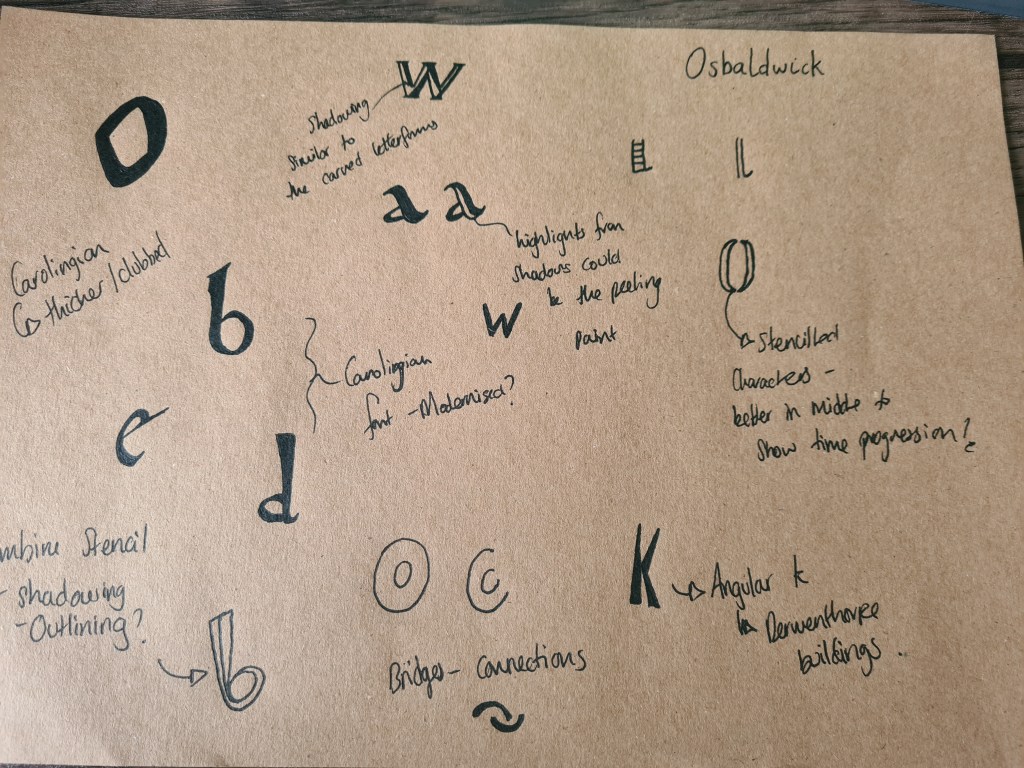 Osbaldwick
w
O
Shadowing
similar to
the carved letterforms
L L
a a
highlights from
shadows could
be the peeling
paint
Carolingian
↳ thicker/clubbed
b
w
O
Stencilled
Characters -
better in middle to
show time progression?
Carolingian
font - Modernised?
e
d
mbine Stencil
- shadowing
- Outlining?
b
O C
Bridges - Connections
K
Angular k
↳ Derwenthorpe
buildings.